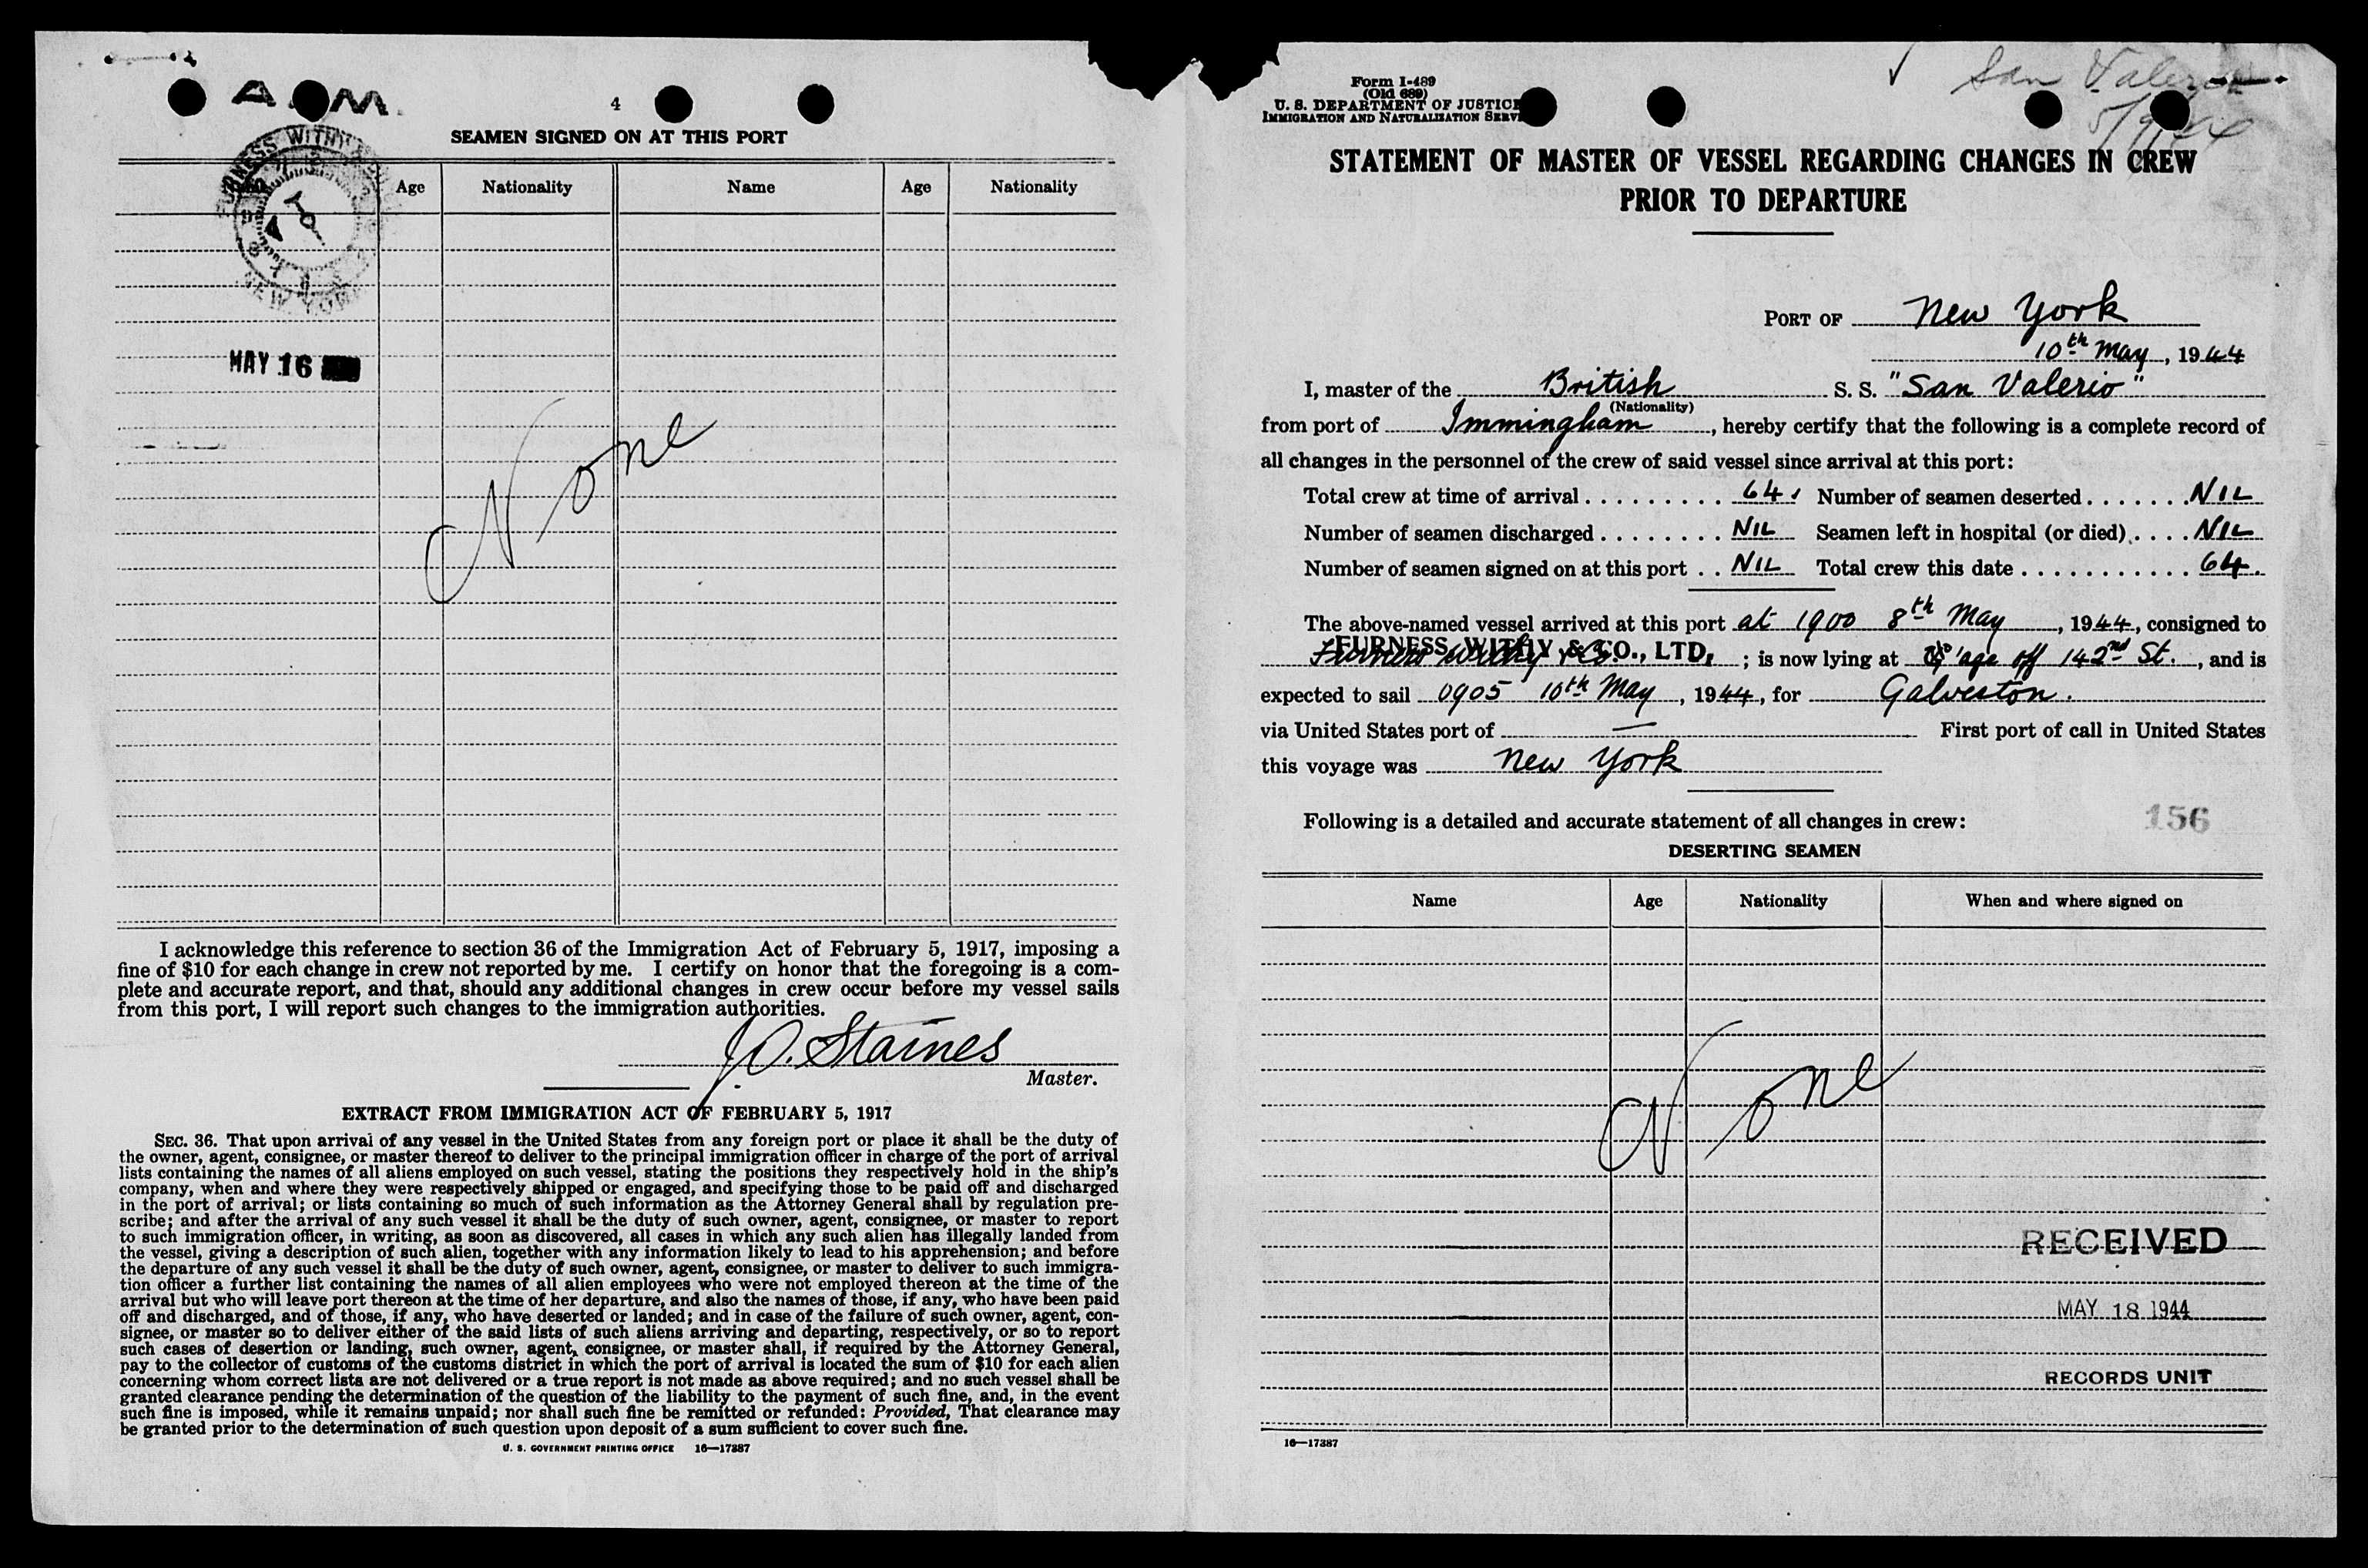 A.M.
4
SEAMEN SIGNED ON AT THIS PORT
Age Nationality Name Age Nationality
FURNESS WITHY
NEW YORK
MAY 16
None
I acknowledge this reference to section 36 of the Immigration Act of February 5, 1917, imposing a
fine of $10 for each change in crew not reported by me. I certify on honor that the foregoing is a com-
plete and accurate report, and that, should any additional changes in crew occur before my vessel sails
from this port, I will report such changes to the immigration authorities.
J.O. Staines
Master.
EXTRACT FROM IMMIGRATION ACT OF FEBRUARY 5, 1917
SEC. 36. That upon arrival of any vessel in the United States from any foreign port or place it shall be the duty of
the owner, agent, consignee, or master thereof to deliver to the principal immigration officer in charge of the port of arrival
lists containing the names of all aliens employed on such vessel, stating the positions they respectively hold in the ship's
company, when and where they were respectively shipped or engaged, and specifying those to be paid off and discharged
in the port of arrival; or lists containing so much of such information as the Attorney General shall by regulation pre-
scribe; and after the arrival of any such vessel it shall be the duty of such owner, agent, consignee, or master to report
to such immigration officer, in writing, as soon as discovered, all cases in which any such alien has illegally landed from
the vessel, giving a description of such alien, together with any information likely to lead to his apprehension; and before
the departure of any such vessel it shall be the duty of such owner, agent, consignee, or master to deliver to such immigra-
tion officer a further list containing the names of all alien employees who were not employed thereon at the time of the
arrival but who will leave port thereon at the time of her departure, and also the names of those, if any, who have been paid
off and discharged, and of those, if any, who have deserted or landed; and in case of the failure of such owner, agent, con-
signee, or master so to deliver either of the said lists of such aliens arriving and departing, respectively, or so to report
such cases of desertion or landing, such owner, agent, consignee, or master shall, if required by the Attorney General,
pay to the collector of customs of the customs district in which the port of arrival is located the sum of $10 for each alien
concerning whom correct lists are not delivered or a true report is not made as above required; and no such vessel shall be
granted clearance pending the determination of the question of the liability to the payment of such fine, and, in the event
such fine is imposed, while it remains unpaid; nor shall such fine be remitted or refunded: Provided, That clearance may
be granted prior to the determination of such question upon deposit of a sum sufficient to cover such fine.
U. S. GOVERNMENT PRINTING OFFICE 16—17387
San Valerio
Form I-489
(Old 689)
U. S. DEPARTMENT OF JUSTICE
IMMIGRATION AND NATURALIZATION SERV
STATEMENT OF MASTER OF VESSEL REGARDING CHANGES IN CREW
PRIOR TO DEPARTURE
PORT OF New York
10th May, 1944
I, master of the British S. S. "San Valerio"
(Nationality)
from port of Immingham, hereby certify that the following is a complete record of
all changes in the personnel of the crew of said vessel since arrival at this port:
Total crew at time of arrival 64 Number of seamen deserted NIL
Number of seamen discharged NIL Seamen left in hospital (or died) NIL
Number of seamen signed on at this port NIL Total crew this date 64.
The above-named vessel arrived at this port at 1900 8th May, 1944, consigned to
FURNESS, WITHY & CO., LTD. ; is now lying at off 142nd St., and is
expected to sail 0905 10th May, 1944, for Galveston.
via United States port of — First port of call in United States
this voyage was New York
156
Following is a detailed and accurate statement of all changes in crew:
DESERTING SEAMEN
Name Age Nationality When and where signed on
None
RECEIVED
MAY 18 1944
RECORDS UNIT
16—17387